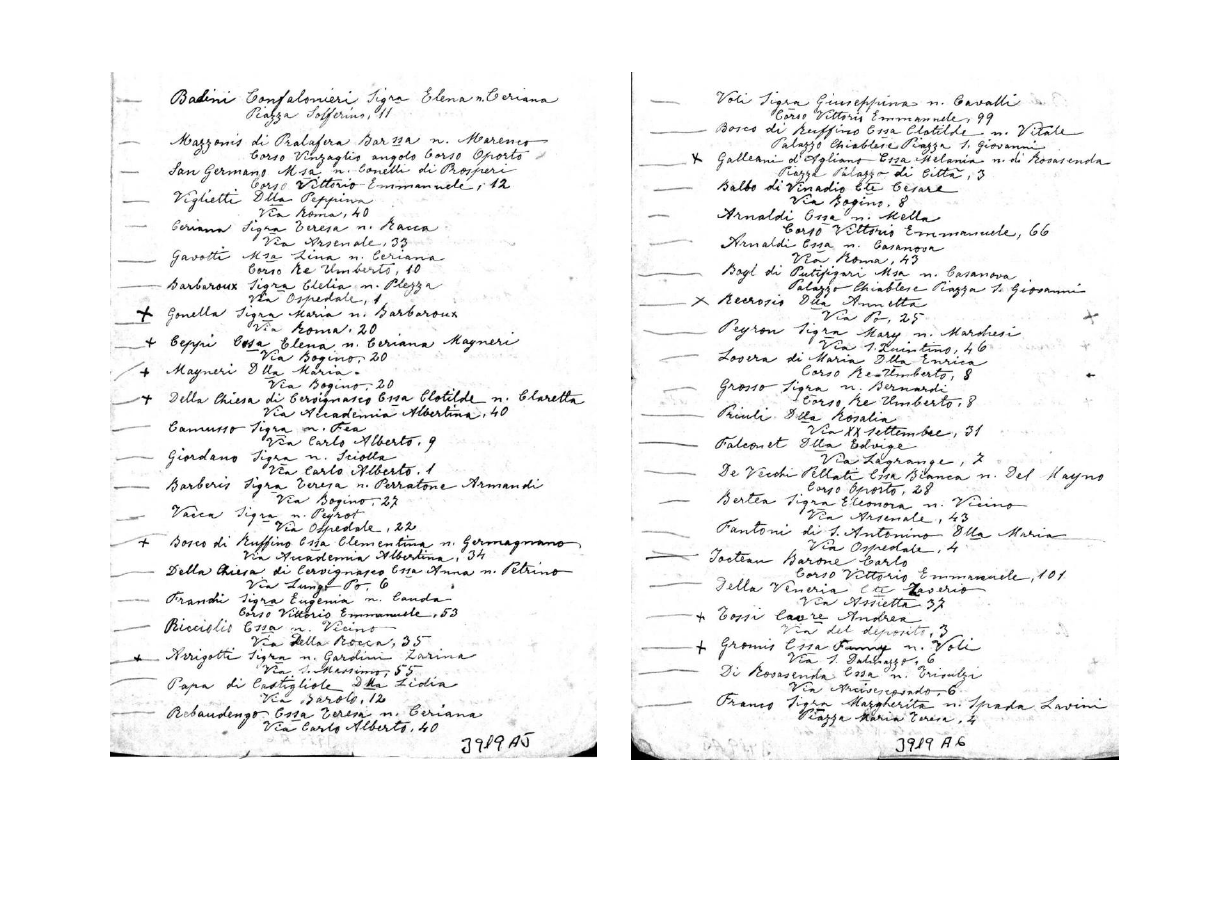 Badini Confalonieri Sigra Elena n. Ceriana
Piazza Solferino, 11
Mazzonis di Pralafera Barssa n. Marenco
Corso Vinzaglio angolo Corso Oporto
San Germano Msa n. Conelli di Prosperi
Corso Vittorio Emmanuele, 12
Viglietti Dlla Peppina
Via Roma, 40
Ceriana Sigra Teresa n. Racca
Via Arsenale, 33
Gavotti Msa Lina n. Ceriana
Corso Re Umberto, 10
Barbaroux Sigra Clelia n. Plezza
Via Ospedale, 1
+ Gonella Sigra Maria n. Barbaroux
Via Roma, 20
+ Ceppi Cssa Elena n. Ceriana Mayneri
Via Bogino, 20
+ Mayneri Dlla Maria
Via Bogino, 20
+ Della Chiesa di Cervignasco Cssa Clotilde n. Claretta
Via Accademia Albertina, 40
Camusso Sigra n. Fea
Via Carlo Alberto, 9
Giordano Sigra n. Sciolla
Via Carlo Alberto, 1
Barberis Sigra Teresa n. Perratone Armandi
Via Bogino, 27
Vacca Sigra n. Peyrot
Via Ospedale, 22
+ Bosco di Ruffino Cssa Clementina n. Germagnano
Via Academia Albertina, 34
Della Chiesa di Cervignasco Cssa Anna n. Petrino
Via Lungo Po, 6
Prandi Sigra Eugenia n. Cauda
Corso Vittorio Emmanuele, 53
Ricciolio Cssa n. Vicino
Via Della Rocca, 35
+ Arrigotti Sigra n. Gardini Zarina
Via S. Massimo, 55
Papa di Castigliole Dlla Lidia
Via Barolo, 12
Rebaudengo Cssa Teresa n. Ceriana
Via Carlo Alberto, 40
3919 A5
Voli Sigra Giuseppina n. Cavalli
Corso Vittorio Emmanuele, 99
Bosco di Ruffino Cssa Clotilde n. Vitale
Palazzo Chiablese Piazza S. Giovanni
x Galleani d'Agliano Cssa Melania n. di Rosasenda
Piazza Palazzo di Città, 3
Balbo di Vinadio Cte Cesare
Via Bogino, 8
Arnaldi Cssa n. Mella
Corso Vittorio Emmanuele, 66
Arnaldi Cssa n. Casanova
Via Roma, 43
Bogl di Putifigari Msa n. Casanova
Palazzo Chiablese Piazza S. Giovanni
x Recrosio Dlla Annetta
Via Po, 25
Peyron Sigra Mary n. Marchesi
Via S. Quintino, 46
Lovera di Maria Dlla Enrica
Corso Re Umberto, 8
Grosso Sigra n. Bernardi
Corso Re Umberto, 8
Priuli Dlla Rosalia
Via XX settembre, 31
Falconet Dlla Edvige
Via Lagrange, 7
De Vecchi Pellati Cssa Bianca n. Del Mayno
Corso Oporto, 28
Bertea Sigra Eleonora n. Vicino
Via Arsenale, 43
Fantoni di S. Antonino Dlla Maria
Via Ospedale, 4
Jocteau Barone Carlo
Corso Vittorio Emmanuele, 101
Della Veneria Cte Zaverio
Via Assietta 37
+ Tossi Cavre Andrea
Via del deposito, 3
+ Gromis Cssa Fanny n. Voli
Via S. Dalmazzo, 6
Di Rosasenda Cssa n. Trisulzi
Via Arcivescovado, 6
Franco Sigra Margherita n. Spada Lavini
Piazza Maria Teresa, 4
3919 A6